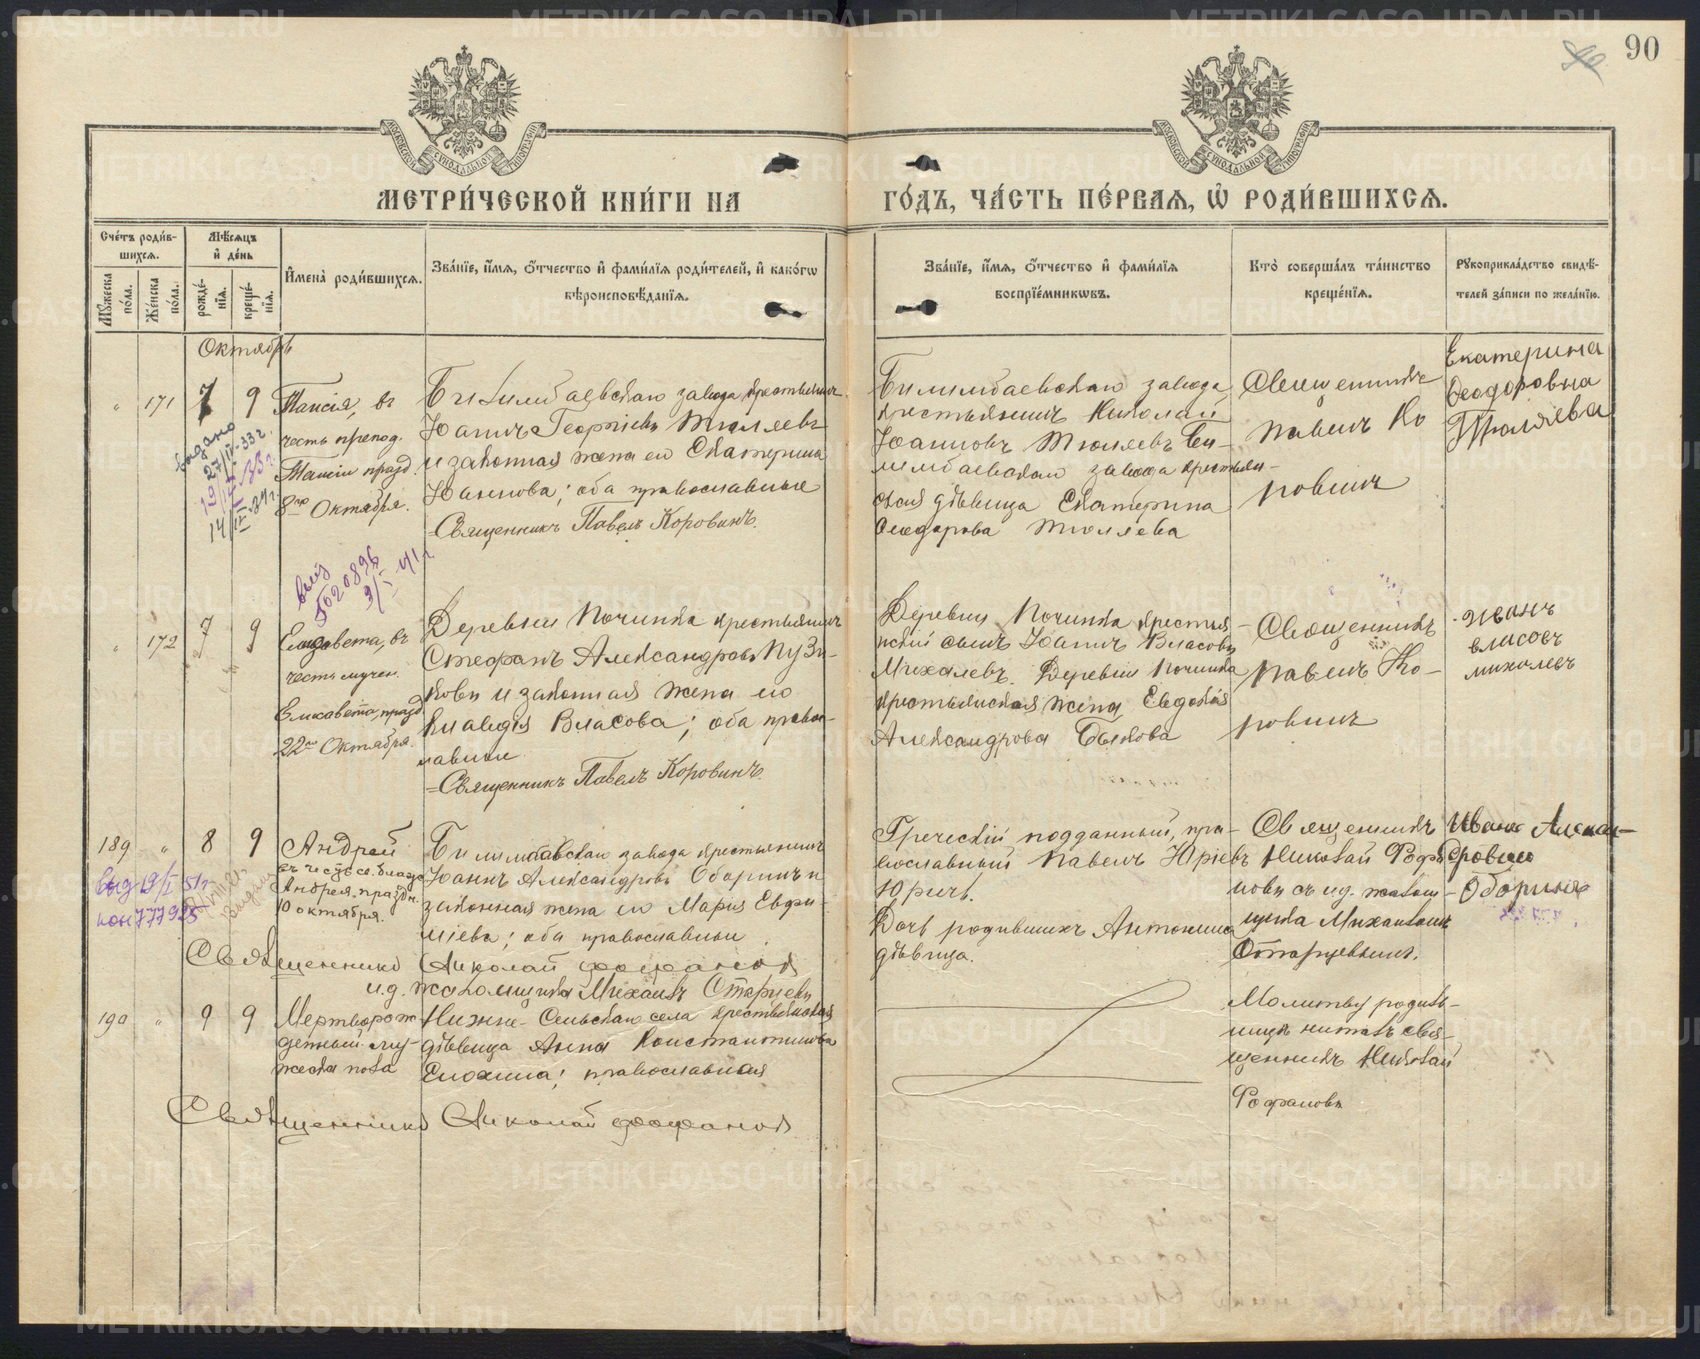 90
МОСКОВСКОЙ СѴНОДАЛЬНОЙ ТИПОГРАФІИ
МОСКОВСКОЙ СѴНОДАЛЬНОЙ ТИПОГРАФІИ
МЕТРИ́ЧЕСКОЙ КНИ́ГИ НА ГО́ДЪ, ЧА́СТЬ ПЕ́РВАЯ, Ѡ҆ РОДИ́ВШИХСЯ.
Сче́тъ роди́в-
шихся.
Мꙋ́жеска по́ла.
Же́нска по́ла.
Мѣ́сяцъ
и҆ де́нь
рожде́-
нїя.
креще́-
нїя.
И҆мена̀ роди́вшихся.
Зва́нїе, и҆́мя, ѻ҆́тчество и҆ фами́лїя роди́телей, и҆ како́гѡ
вѣроисповѣ́данїя.
Зва́нїе, и҆́мя, ѻ҆́тчество и҆ фами́лїя
воспрїе́мникѡвъ.
Кто̀ соверша́лъ та́инство
креще́нїя.
Рꙋкоприкла́дство свидѣ́-
телей за́писи по жела́нїю.
Октябрь
" 171 7 9
Таисія, въ
честь препод.
Таисіи празд.
8го Октября.
выдано
27/IV-33г.
19/II 33г.
14/II 34г.
Билимбаевскаго завода крестьянинъ
Іоаннъ Георгіевъ Тюляевъ
и законная жена его Екатерина
Іоаннова; оба православные
Священникъ Павелъ Коровинъ.
Билимбаевскаго завода
крестьянинъ Николай
Іоанновъ Тюляевъ Би-
лимбаевскаго завода крестьян-
ская дѣвица Екатерина
Ѳеодорова Тюляева
Священникъ
Павелъ Ко
ровинъ
Екатерина
Ѳеодоровна
Тюляева
" 172 7 9
620896
Елизавета, въ
честь мучен.
Елисаветы, празд.
22го Октября.
Деревни Починка крестьянинъ
Стефанъ Александровъ Пузи-
ковъ и законная жена его
Клавдія Власова; оба право-
славные
Священникъ Павелъ Коровинъ.
Деревни Починка крестья-
нскій сынъ Іоаннъ Власовъ
Михалевъ. Деревни Починка
крестьянская жена Евдокія
Александрова Быкова
Священникъ
Павелъ Ко-
ровинъ
Иванъ
власовъ
михалевъ
189 " 8 9
выд 19/I 51г.
777925
Андрей
въ честь св. блаж.
Андрея. праздн.
10 октября.
Билимбаевскаго завода крестьянинъ
Іоаннъ Александровъ Оборинъ и
законная жена его Марія Евфи-
міева; оба православные
Священникъ Николай Фофановъ
и.д. псаломщика Михаилъ
Греческій подданный, пра-
вославный Павелъ Юріевъ
Юричъ.
Дочь родившихъ Антонина
дѣвица.
Священникъ
Николай Фофа-
новъ съ и.д. псалом-
щика Михаиломъ
Иванъ Алексан-
дровичъ
Оборинъ
190 " 9 9
Мертворож-
денный му-
жеска пола
Нижне-Сельскаго села крестьянская
дѣвица Анна Константинова
Елохина; православная
Священникъ Николай Фофановъ
Молитвы родиль-
ницѣ читалъ свя-
щенникъ Николай
Фофановъ
METRIKI.GASO-URAL.RU